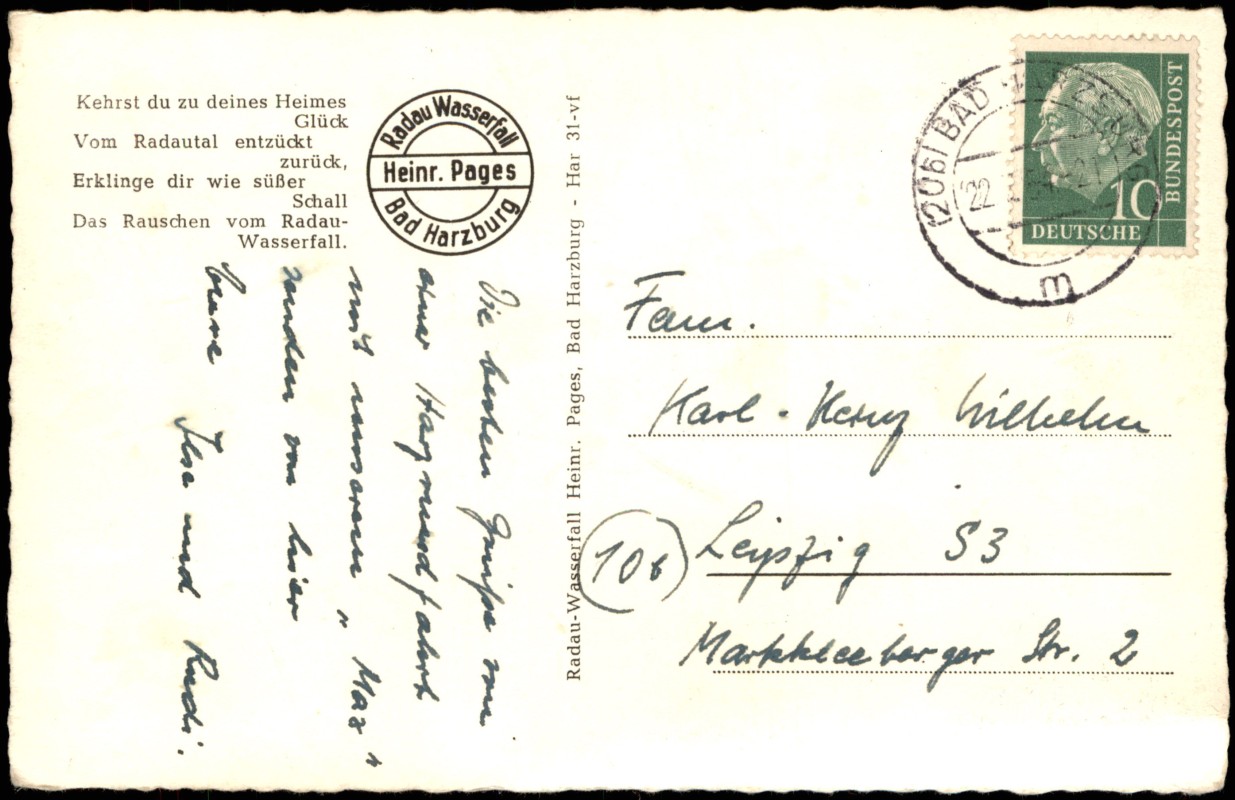 Kehrst du zu deines Heimes
Glück
Vom Radautal entzückt
zurück,
Erklinge dir wie süßer
Schall
Das Rauschen vom Radau-
Wasserfall.
Radau Wasserfall
Heinr. Pages
Bad Harzburg
Die besten Grüße von
einer Harzrundfahrt
mit unserem „Max“
senden von hier
Eure Ilse und Rudi.
Radau-Wasserfall Heinr. Pages, Bad Harzburg - Har 31-vf
(20b) BAD HARZBURG
22
m
BUNDESPOST
10
DEUTSCHE
Fam.
Karl-Heinz Wilhelm
(10b) Leipzig S3
Markkleeberger Str. 2